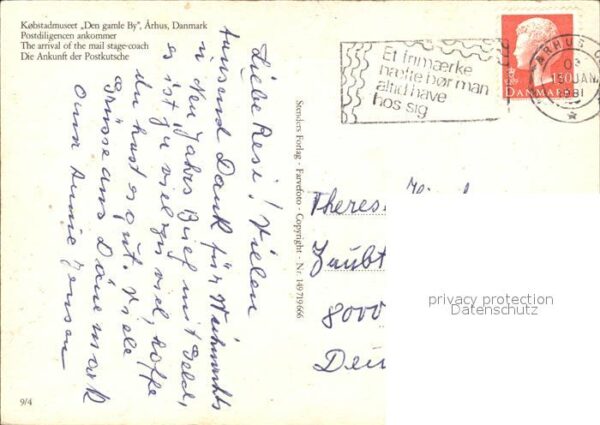 Købstadmuseet „Den gamle By", Århus, Danmark
Postdiligencen ankommer
The arrival of the mail stage-coach
Die Ankunft der Postkutsche
Et frimærke
hæfte bør man
altid have
hos sig
ÅRHUS C
03
13 JAN.
1981
130
DANMARK
Liebe Resi! Vielen
tausend Dank für Weihnachts
u Neu Jahrs Brief mit Geld,
es ist zu viel zu viel, hoffe
du hast es gut. Viele
Grüsse aus Dänemark
Oma Annie Jensen
Stenders Forlag · Farvefoto · Copyright · Nr. 149 719 666
Theres
8000
privacy protection
Datenschutz
9/4